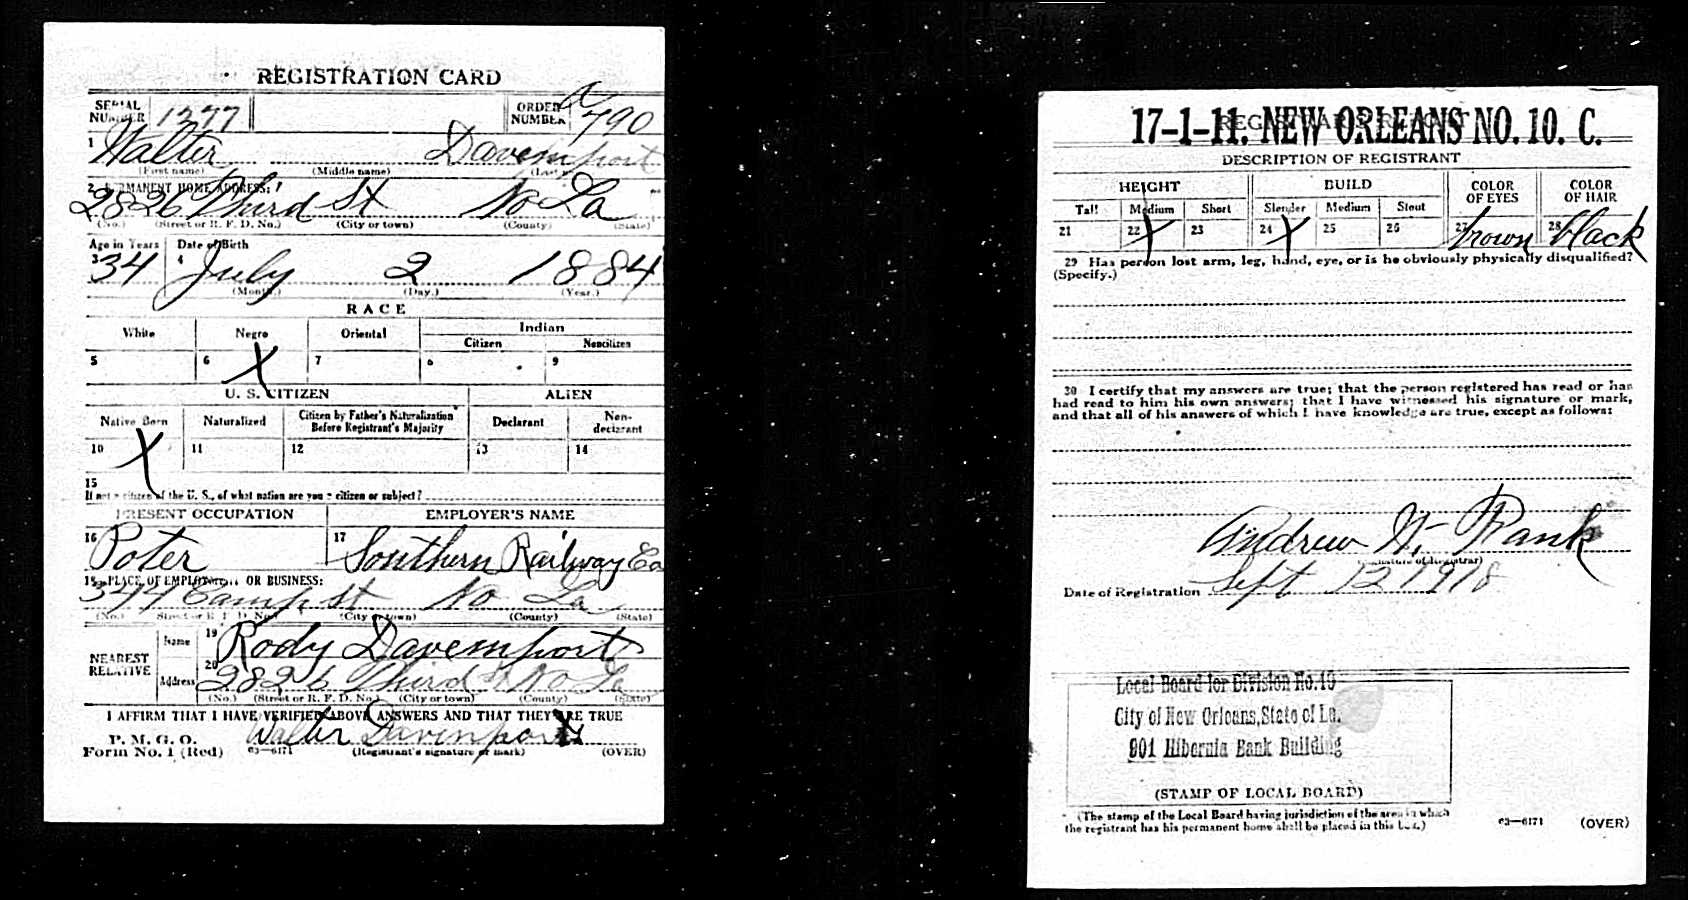 REGISTRATION CARD
SERIAL NUMBER 1277 ORDER NUMBER A 790
1 Walter Davenport
(First name) (Middle name) (Last name)
2 PERMANENT HOME ADDRESS:
2826 Third St No La
(No.) (Street or R. F. D. No.) (City or town) (County) (State)
Age in Years Date of Birth
3 34 4 July 2 1884
(Month.) (Day.) (Year.)
RACE
White Negro Oriental Indian
Citizen Noncitizen
5 6 X 7 8 9
U. S. CITIZEN ALIEN
Native Born Naturalized Citizen by Father's Naturalization Before Registrant's Majority Declarant Non-declarant
10 X 11 12 13 14
15
If not a citizen of the U. S., of what nation are you a citizen or subject?
PRESENT OCCUPATION EMPLOYER'S NAME
16 Poter 17 Southern Railway Co
18 PLACE OF EMPLOYMENT OR BUSINESS:
Camp St No La
(No.) (Street or R. F. D. No.) (City or town) (County) (State)
NEAREST RELATIVE Name 19 Rody Davemport
Address 20 2826 Third St No La
(No.) (Street or R. F. D. No.) (City or town) (County) (State)
I AFFIRM THAT I HAVE VERIFIED ABOVE ANSWERS AND THAT THEY ARE TRUE
P. M. G. O.
Form No. 1 (Red) 03—6171 Walter Davenport
(Registrant's signature or mark) (OVER)
17-1-11. NEW ORLEANS NO. 10. C.
REGISTRAR'S REPORT
DESCRIPTION OF REGISTRANT
HEIGHT BUILD COLOR OF EYES COLOR OF HAIR
Tall Medium Short Slender Medium Stout
21 22 X 23 24 X 25 26 27 brown 28 black
29 Has person lost arm, leg, hand, eye, or is he obviously physically disqualified?
(Specify.)
30 I certify that my answers are true; that the person registered has read or has
had read to him his own answers; that I have witnessed his signature or mark,
and that all of his answers of which I have knowledge are true, except as follows:
Andrew H. Rank
(Signature of Registrar)
Date of Registration Sept 12 1918
Local Board for Division No. 10
City of New Orleans, State of La.
901 Hibernia Bank Building
(STAMP OF LOCAL BOARD)
(The stamp of the Local Board having jurisdiction of the area in which
the registrant has his permanent home shall be placed in this box.)
03—6171 (OVER)